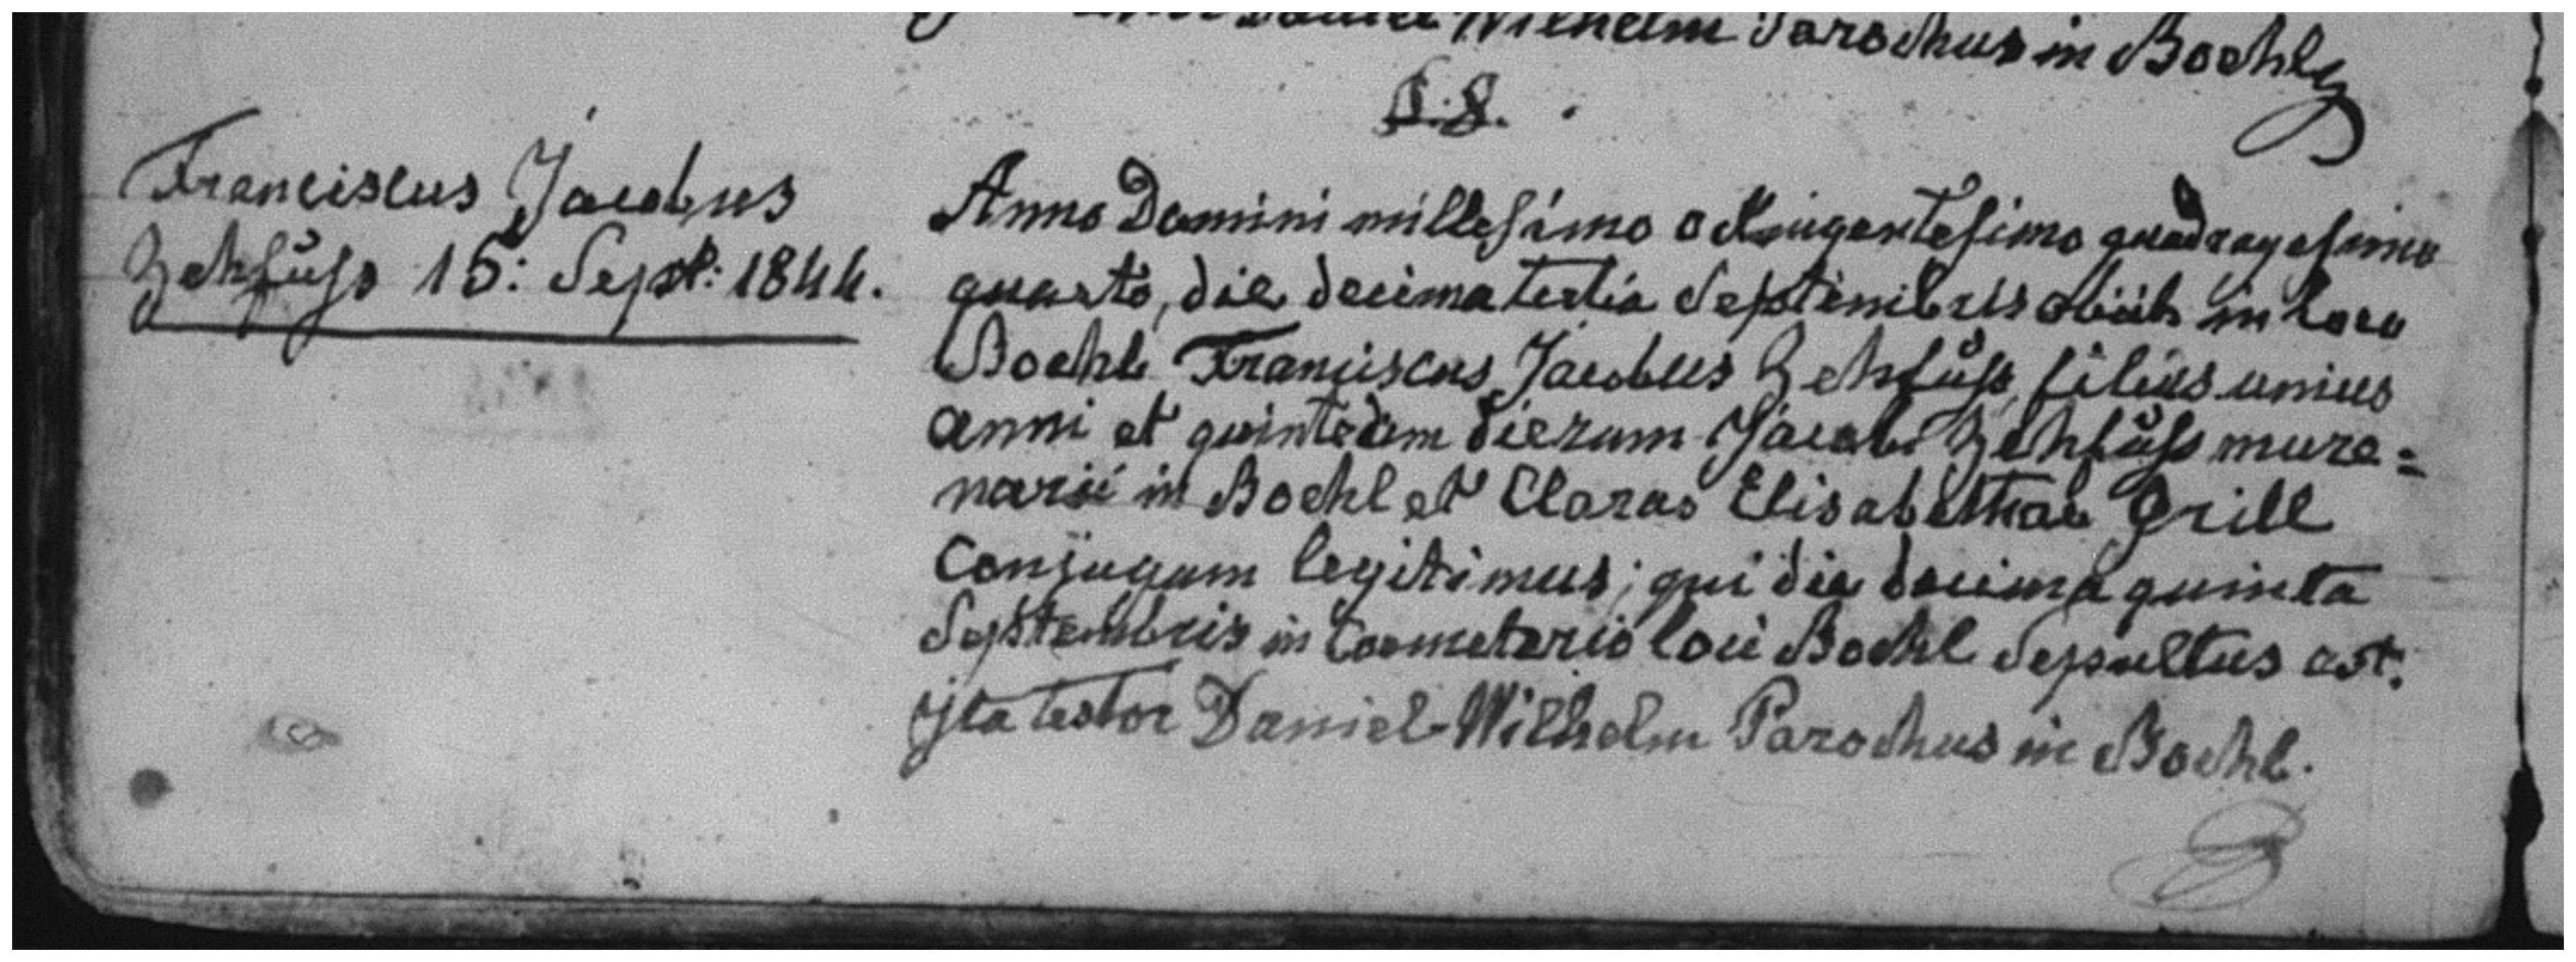 Daniel Wilhelm Parochus in Boehl
§. 8.
Franciscus Jacobus
Zehfüss 15: Sept: 1844.
Anno Domini millesimo octingentesimo quadragesimo
quarto, die decima tertia Septembris obiit in loco
Boehl Franciscus Jacobus Zehfüss, filius unius
anni et quintedim dierum Jacobi Zehfüss mure=
narii in Boehl et Claras Elisabethae Grill
Conjugum legitimus; qui die decima quinta
Septembris in Coemeterio loci Boehl sepultus est.
Ita testor Daniel Wilhelm Parochus in Boehl.